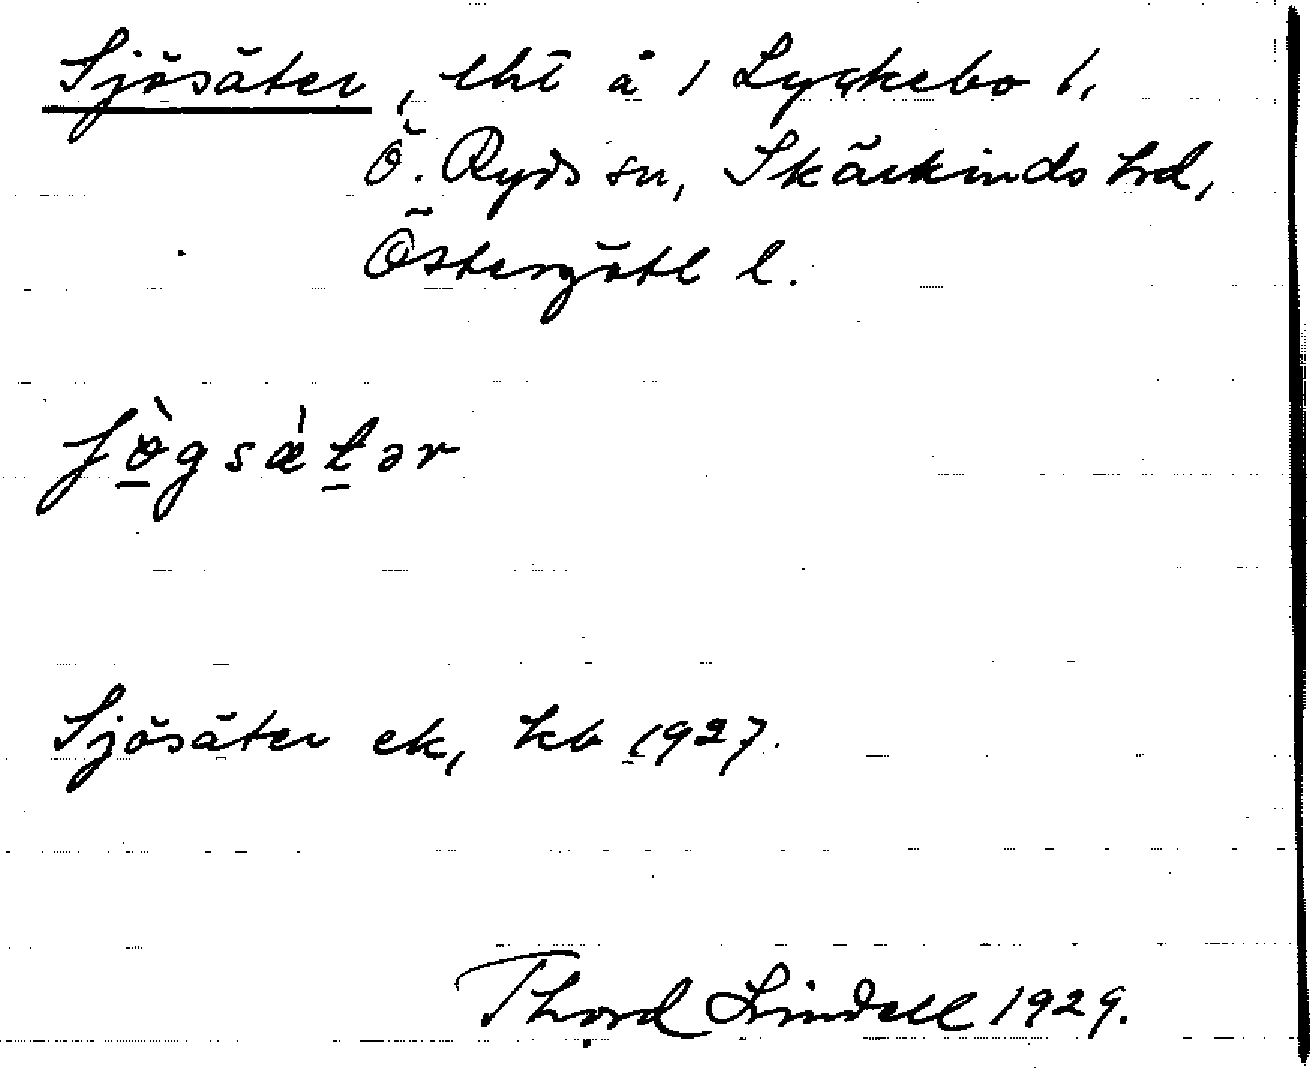 Sjösäter, lht å 1 Lyckebo 1,
Ö. Ryds sn, Skärkinds hrd,
Östergötl l.
Sjösäter ek, kb 1927.
Thord Lindell 1929.